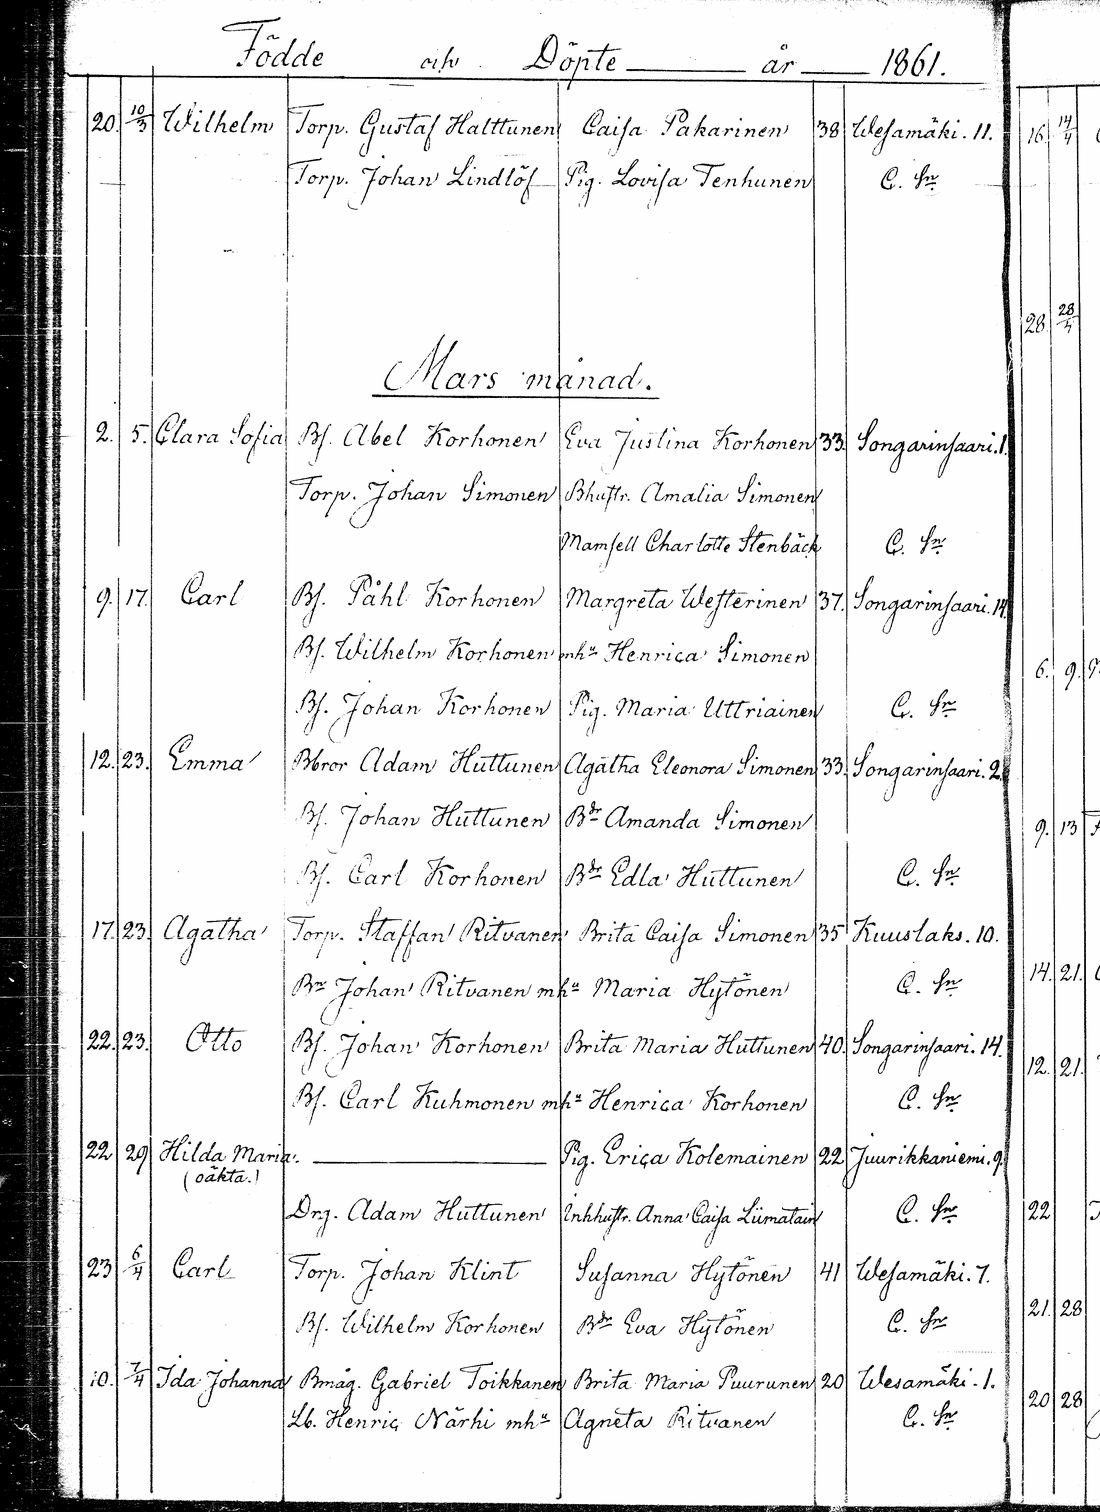 Födde och Döpte år 1861.
20. 10/3 Wilhelm Torp. Gustaf Halttunen Caisa Pakarinen 38 Wesamäki. 11.
Torp. Johan Lindlöf Pig. Lovisa Tenhunen C. Sn
Mars månad.
2. 5. Clara Sofia Bf. Abel Korhonen Eva Justina Korhonen 33. Songarinsaari. 1.
Torp. Johan Simonen Bhustr. Amalia Simonen
Mamsell Charlotte Stenbäck C. Sn
9. 17. Carl Bf. Påhl Korhonen Margreta Westerinen 37. Songarinsaari. 14.
Bf. Wilhelm Korhonen mhu Henrica Simonen
Bf. Johan Korhonen Pig. Maria Uttriainen C. Sn
12. 23. Emma Bbror Adam Huttunen Agatha Eleonora Simonen 33. Songarinsaari. 2.
Bf. Johan Huttunen Bdr Amanda Simonen
Bf. Carl Korhonen Bdr Edla Huttunen C. Sn
17. 23. Agatha Torp. Staffan Ritvanen Brita Caisa Simonen 35 Kuuslaks. 10.
Bn Johan Ritvanen mhu Maria Hytönen C. Sn
22. 23. Otto Bf. Johan Korhonen Brita Maria Huttunen 40. Songarinsaari. 14.
Bf. Carl Kuhmonen mhu Henrica Korhonen C. Sn
22 29 Hilda Maria. Pig. Erica Kolemainen 22 Juurikkaniemi. 9.
(oäkta.)
Drg. Adam Huttunen Inhhustr. Anna Caisa Liimatain C. Sn
23 6/4 Carl Torp. Johan Klint Susanna Hytönen 41 Wesamäki. 7.
Bf. Wilhelm Korhonen Bdr Eva Hytönen C. Sn
10. 7/4 Ida Johanna Bmåg. Gabriel Toikkanen Brita Maria Puurunen 20 Wesamäki. 1.
Lb. Henric Närhi mhu Agneta Ritvanen C. Sn
16. 14/4
28. 28/4
6. 9.
9. 13
14. 21.
12. 21.
22
21. 28
20 28